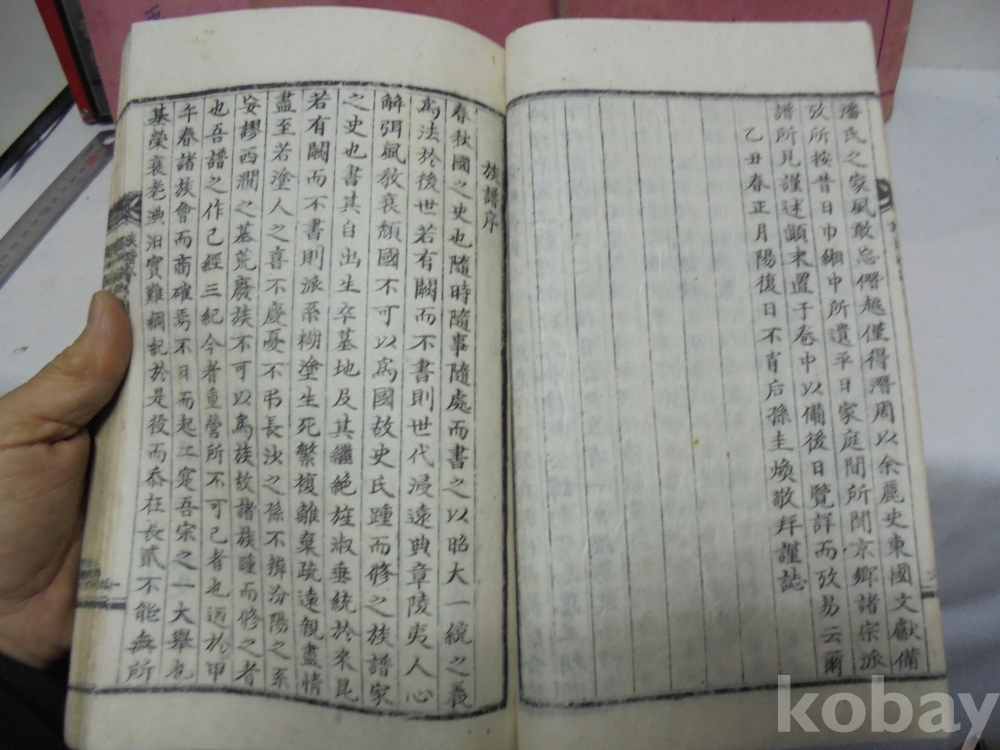 潘氏之家風敢忘僭越僅得潛周以余麗史東國文獻備
攷所按昔日巾緗中所遺平日家庭間所聞京鄉諸宗派
譜所見謹述顚末置于卷中以備後日覽詳而攷易云爾
乙丑春正月陽復日不肖后孫圭煥敬拜謹誌
族譜序
春秋國之史也隨時隨事隨處而書之以昭大一統之義
爲法於後世若有闕而不書則世代浸遠典章陵夷人心
解弛風敎衰頹國不可以爲國故史氏踵而修之族譜家
之史也書其自出生卒基地及其繼絶旌淑垂統於來昆
若有闕而不書則派系糊塗生死繁複離棄疏遠親盡情
盡至若塗人之喜不慶憂不弔長沙之孫不辨汾陽之系
安謬西澗之墓荒廢族不可以爲族故諸族踵而修之者
也吾譜之作已經三紀今者重營所不可已者也迺於甲
午春諸族會而商確焉不日而起工寔吾宗之一大擧也
基榮衰老漁汩實難綱紀於是役而忝在長貳不能無所
kobay